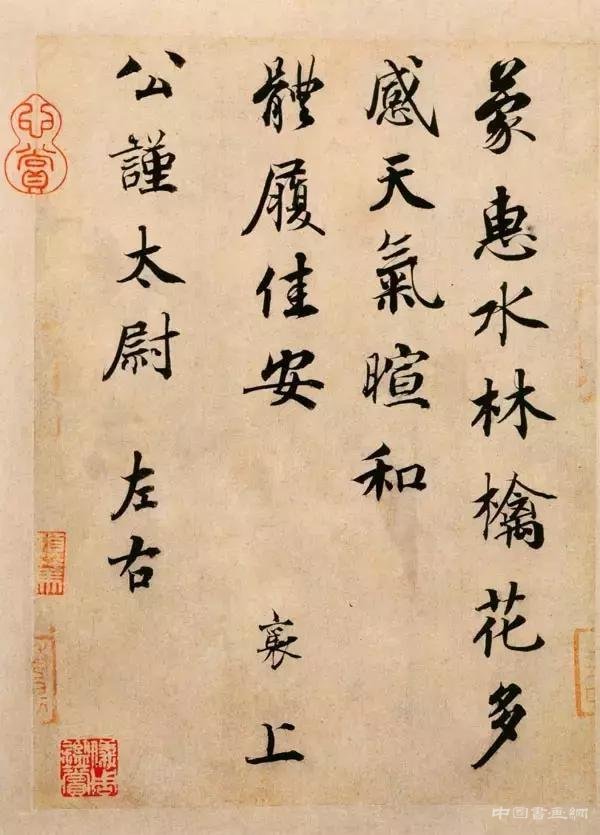 蒙惠水林檎花多
感天氣暄和
體履佳安　襄　上
公謹太尉　左右
中國書畫網